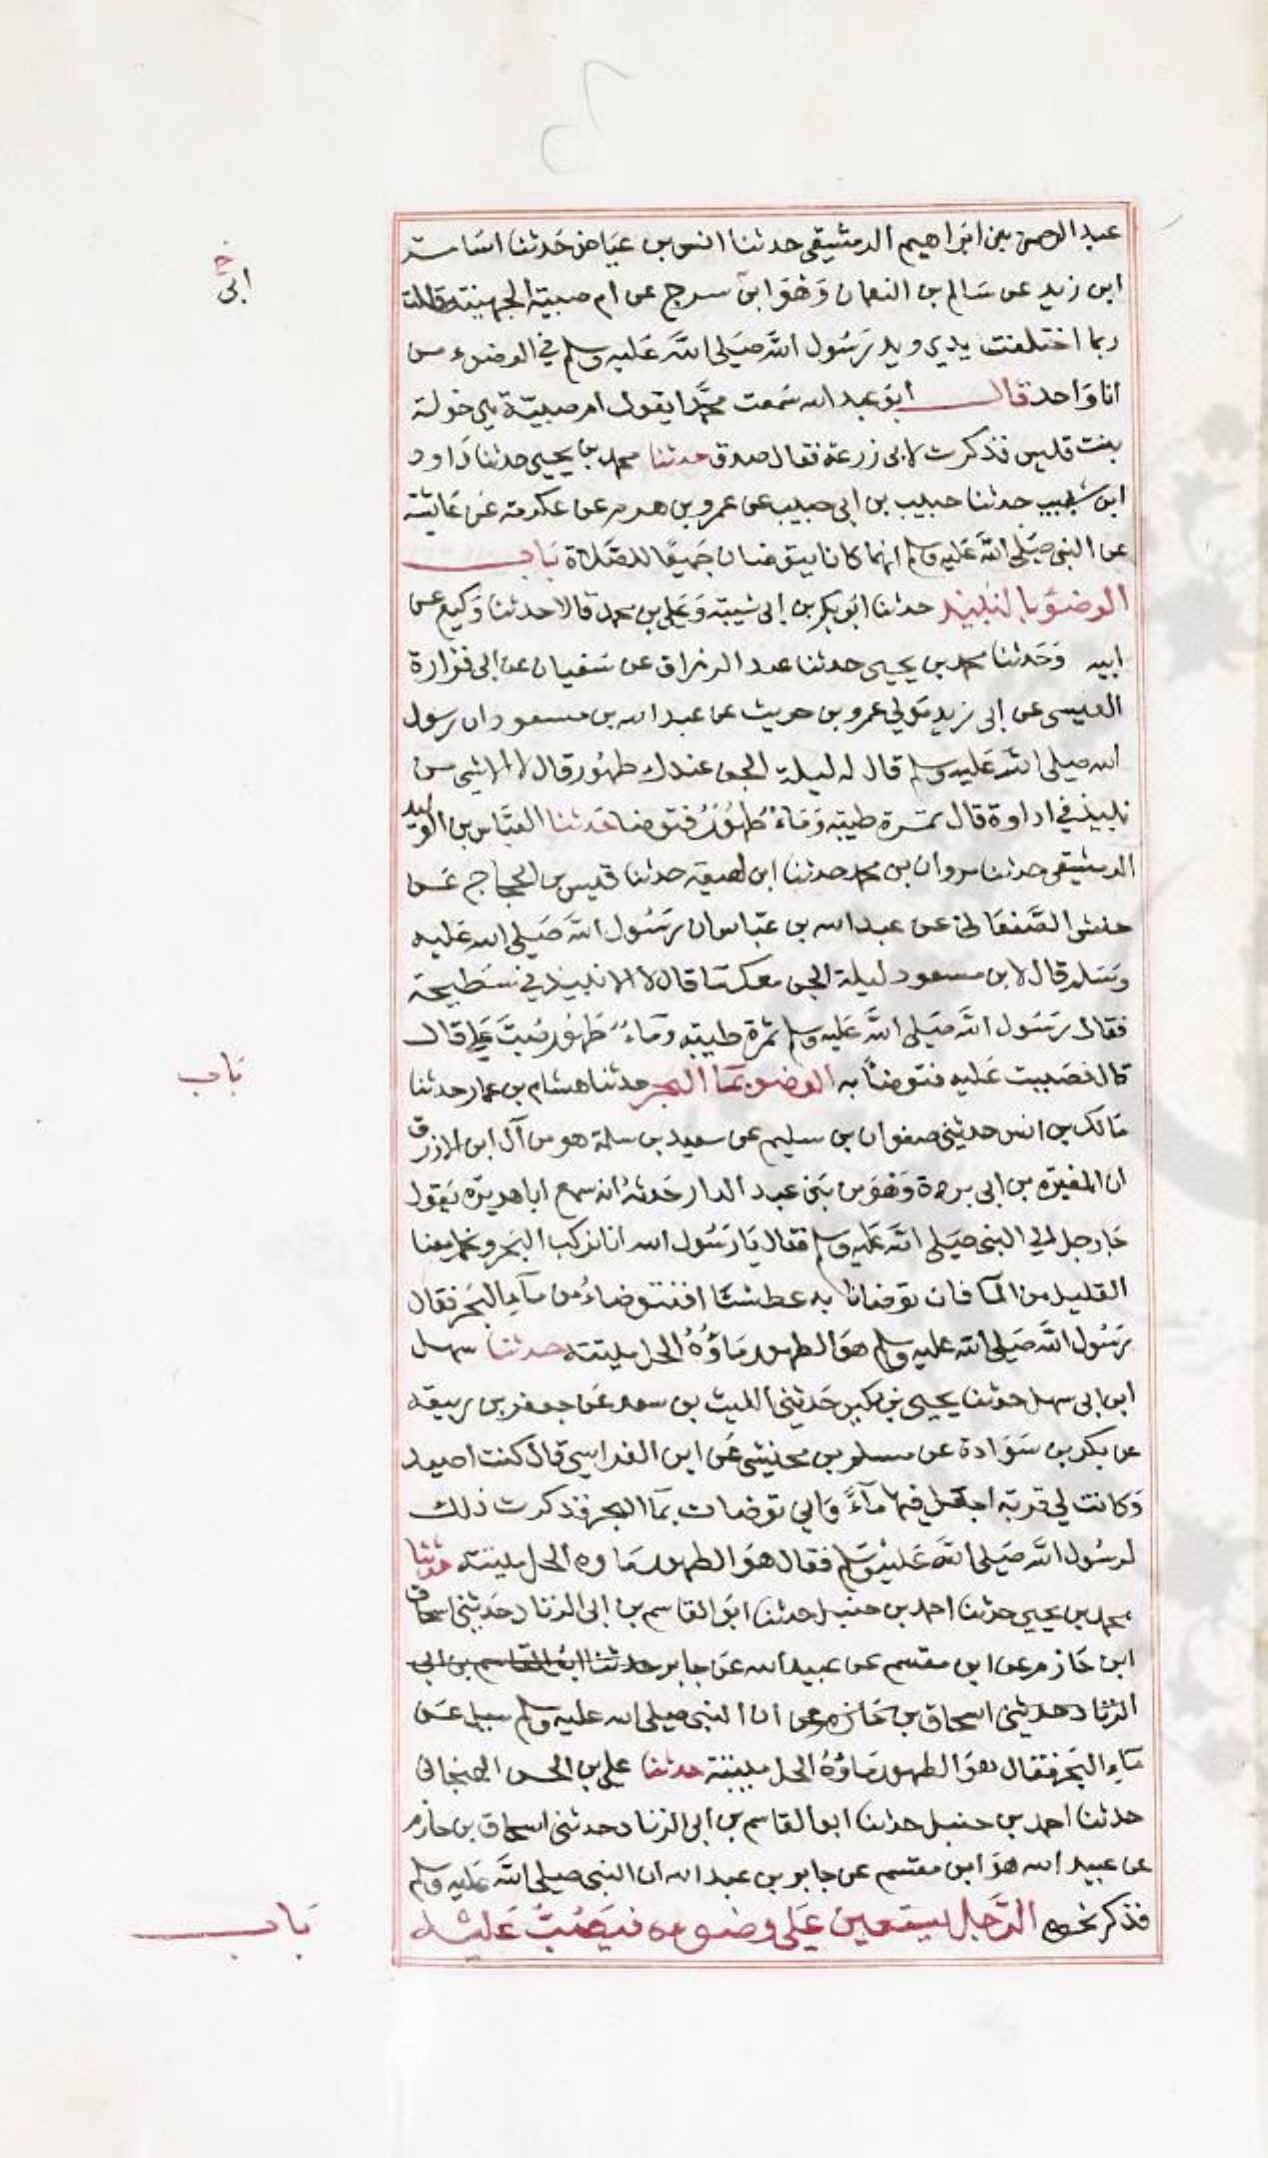 عبد الرحمن بن ابراهيم الدمشقي حدثنا انس بن عياض حدثنا اسامة
ابن زيد عن سالم بن النعمان وهو ابن سرج عن ام صبية الجهنية قالت
ابي
ربما اختلفت يدي ويد رسول الله صلى الله عليه وسلم في الوضوء من
انا واحد قال ابو عبد الله سمعت محمدا يقول ام صبية هي خولة
بنت قيس فذكرت لابي زرعة فقال صدق حدثنا محمد بن يحيى حدثنا داود
ابن شبيب حدثنا حبيب بن ابي حبيب عن عمرو بن هرم عن عكرمة عن عايشة
عن النبي صلى الله عليه وسلم انهما كانا يتوضان جميعا للصلاة باب
الوضو بالنبيذ حدثنا ابو بكر بن ابي شيبة وعلي بن محمد قالا حدثنا وكيع عن
ابيه وحدثنا محمد بن يحيى حدثنا عبد الرزاق عن سفيان عن ابي فزارة
العبسي عن ابي زيد مولي عمرو بن حريث عن عبد الله بن مسعود ان رسول
الله صلى الله عليه وسلم قال له ليلة الجن عندك طهور قال لا الا شي من
نبيذ في اداوة قال تمرة طيبة وماء طهور فتوضا حدثنا العباس بن الوليد
الدمشقي حدثنا مروان بن محمد حدثنا ابن لهيعة حدثنا قيس بن الحجاج عن
حنش الصنعاني عن عبد الله بن عباس ان رسول الله صلى الله عليه
وسلم قال لابن مسعود ليلة الجن معك ما قال لا الا نبيذ في سطيحة
فقال رسول الله صلى الله عليه وسلم تمرة طيبة وماء طهور صب علي قال
قال فصببت عليه فتوضا به الوضو بما البحر حدثنا هشام بن عمار حدثنا
باب
مالك بن انس حدثني صفوان بن سليم عن سعيد بن سلمة هو من آل ابن الازرق
ان المغيرة بن ابي بردة وهو من بني عبد الدار حدثه انه سمع ابا هريرة يقول
جا رجل الي النبي صلى الله عليه وسلم فقال يا رسول الله انا نركب البحر ونحمل معنا
القليل من الما فان توضانا به عطشنا افنتوضاء من مآء البحر فقال
رسول الله صلى الله عليه وسلم هو الطهور ماؤه الحل ميتته حدثنا سهل
ابن ابي سهل حدثنا يحيى بن بكير حدثني الليث بن سعد عن جعفر بن ربيعة
عن بكر بن سوادة عن مسلم بن مخشي عن ابن الفراسي قال كنت اصيد
وكانت لي قربة اجعل فيها مآءً واني توضات بما البحر فذكرت ذلك
لرسول الله صلى الله عليه وسلم فقال هو الطهور ماوه الحل ميتته حدثنا
محمد بن يحيى حدثنا احمد بن حنبل حدثنا ابو القاسم بن ابي الزناد حدثني اسحاق
ابن حازم عن ابن مقسم عن عبيد الله عن جابر حدثنا ابو القاسم بن ابي
الزناد حدثني اسحاق بن حازم عن ان النبي صلى الله عليه وسلم سيل عن
ماء البحر فقال هو الطهور ماؤه الحل ميتته حدثنا علي بن الحسن الهنجاني
حدثنا احمد بن حنبل حدثنا ابو القاسم بن ابي الزناد حدثني اسحاق بن حازم
عن عبيد الله هو ابن مقسم عن جابر بن عبد الله ان النبي صلى الله عليه وسلم
فذكر نحوه الرجل يستعين على وضوءه فيصب عليه
باب